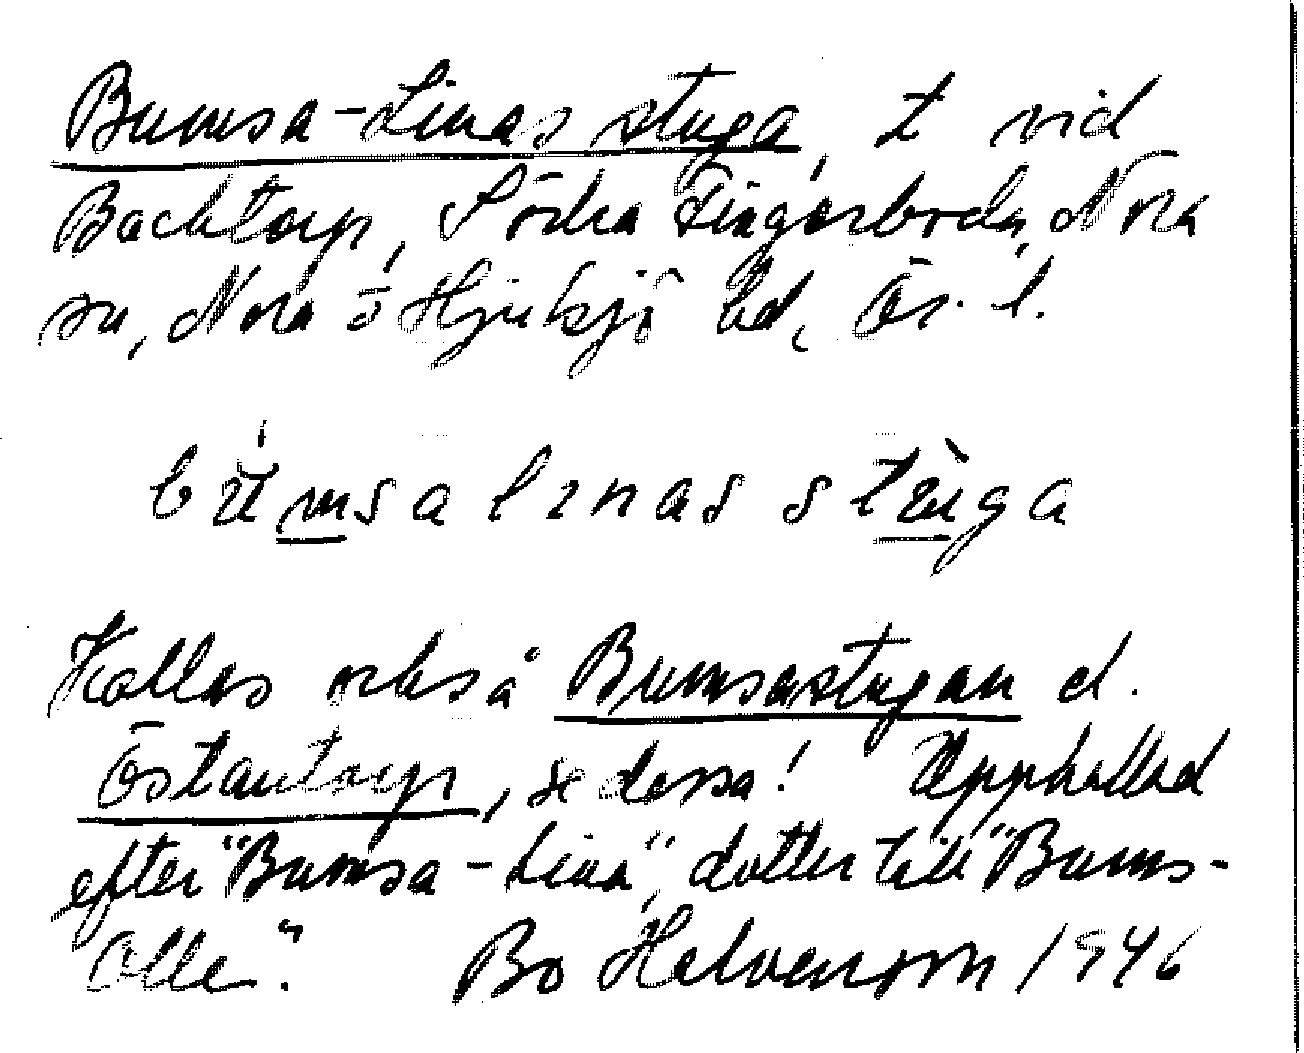 Bumsa-Linas stuga, t vid
Backtorp, Södra Fingerboda, Nora
sn, Nora o Hjulsjö bd, Ör. l.
bumsa linas stuga
Kallas också Bumsastugan el.
Östantorp, se dessa! Uppkallad
efter "Bumsa-Lina", dotter till "Bums-
Olle". Bo Helvenson 1946